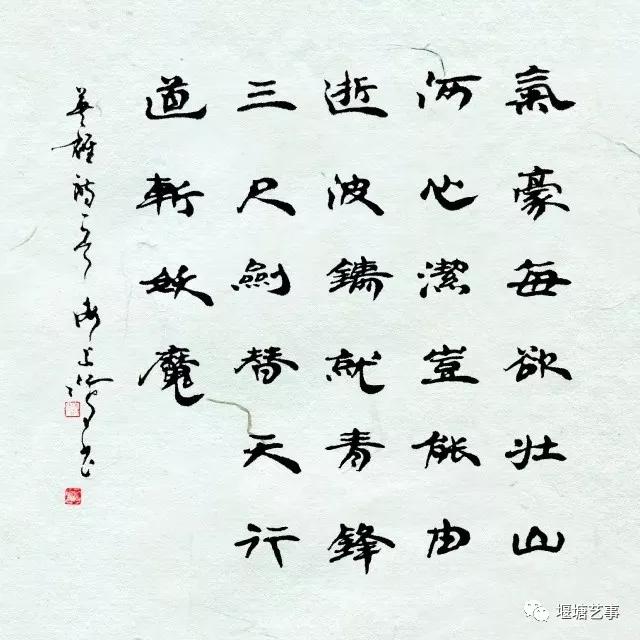 氣豪每欲壯山
河心潔豈能由
逝波鑄就青鋒
三尺劍替天行
道斬妖魔
英雄詩一首 海上
堰塘艺事